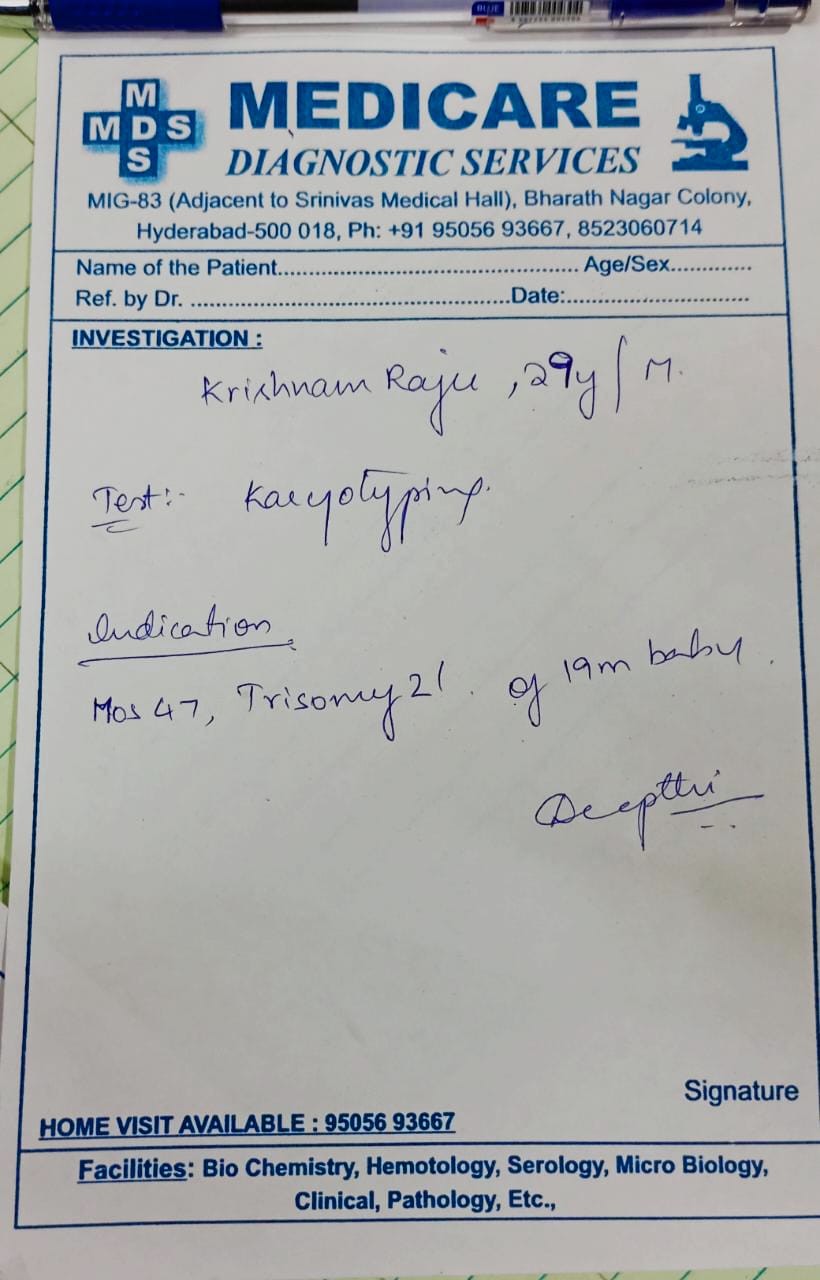 BLUE
M
M D S
S
MEDICARE
DIAGNOSTIC SERVICES
MIG-83 (Adjacent to Srinivas Medical Hall), Bharath Nagar Colony,
Hyderabad-500 018, Ph: +91 95056 93667, 8523060714
Name of the Patient.................................................. Age/Sex.............
Ref. by Dr. .....................................................Date:..............................
INVESTIGATION :
Krishnam Raju, 29y / M.
Test:- Karyotyping.
Indication
Mos 47, Trisomy 21. of 19m baby.
Deepthi
Signature
HOME VISIT AVAILABLE : 95056 93667
Facilities: Bio Chemistry, Hemotology, Serology, Micro Biology,
Clinical, Pathology, Etc.,